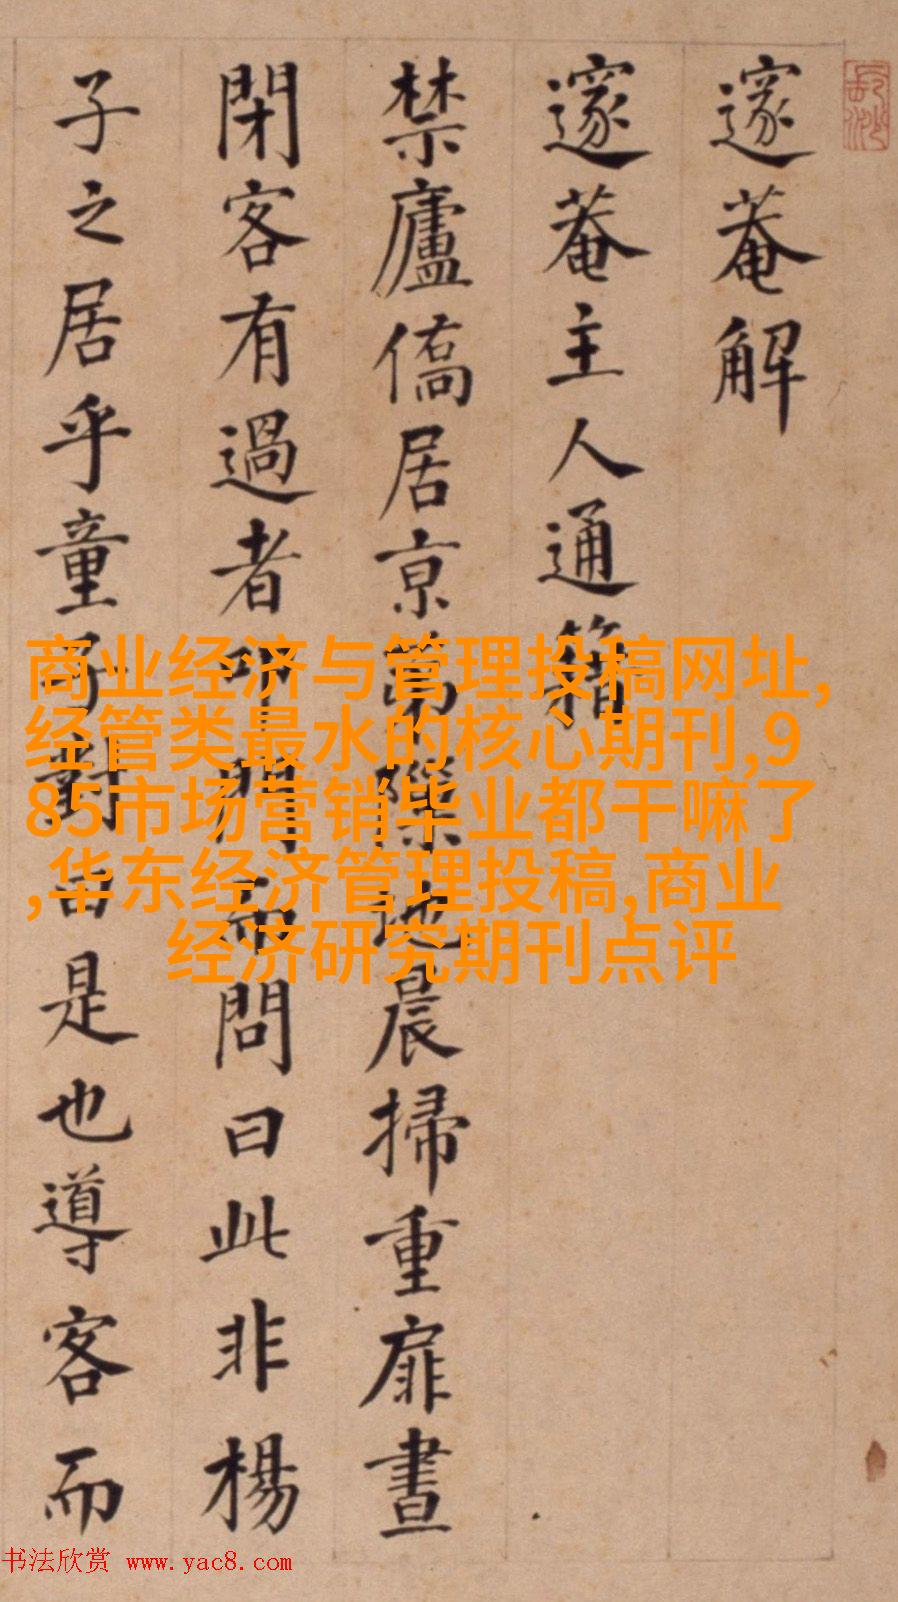 邃菴解
邃菴主人通籍
禁廬僑居京第隙地晨掃重扉晝
閉客有過者叩門而問曰此非楊
子之居乎童子對曰是也導客而
商业经济与管理投稿网址,
经管类最水的核心期刊,9
85市场营销毕业都干嘛了
,华东经济管理投稿,商业
经济研究期刊点评
书法欣赏 www.yac8.com